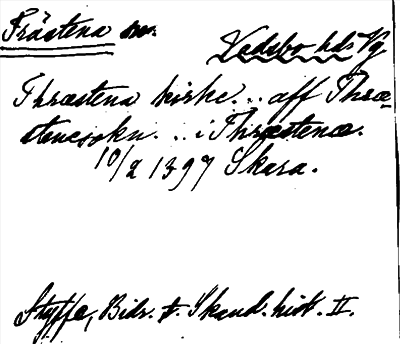 Frästena sn. Vadsbo hds Vg
Thræstena kirke... aff Thræ-
stenesokn... i Thræstenæ.
10/2 1397 Skara.
Styffe, Bidr. t. Skand. hist. II.